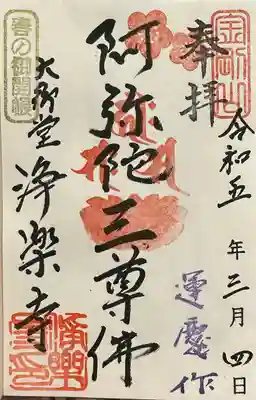 金剛山
奉拝
令和五年三月四日
運慶作
阿弥陀三尊佛
春の御開帳
大御堂
浄楽寺